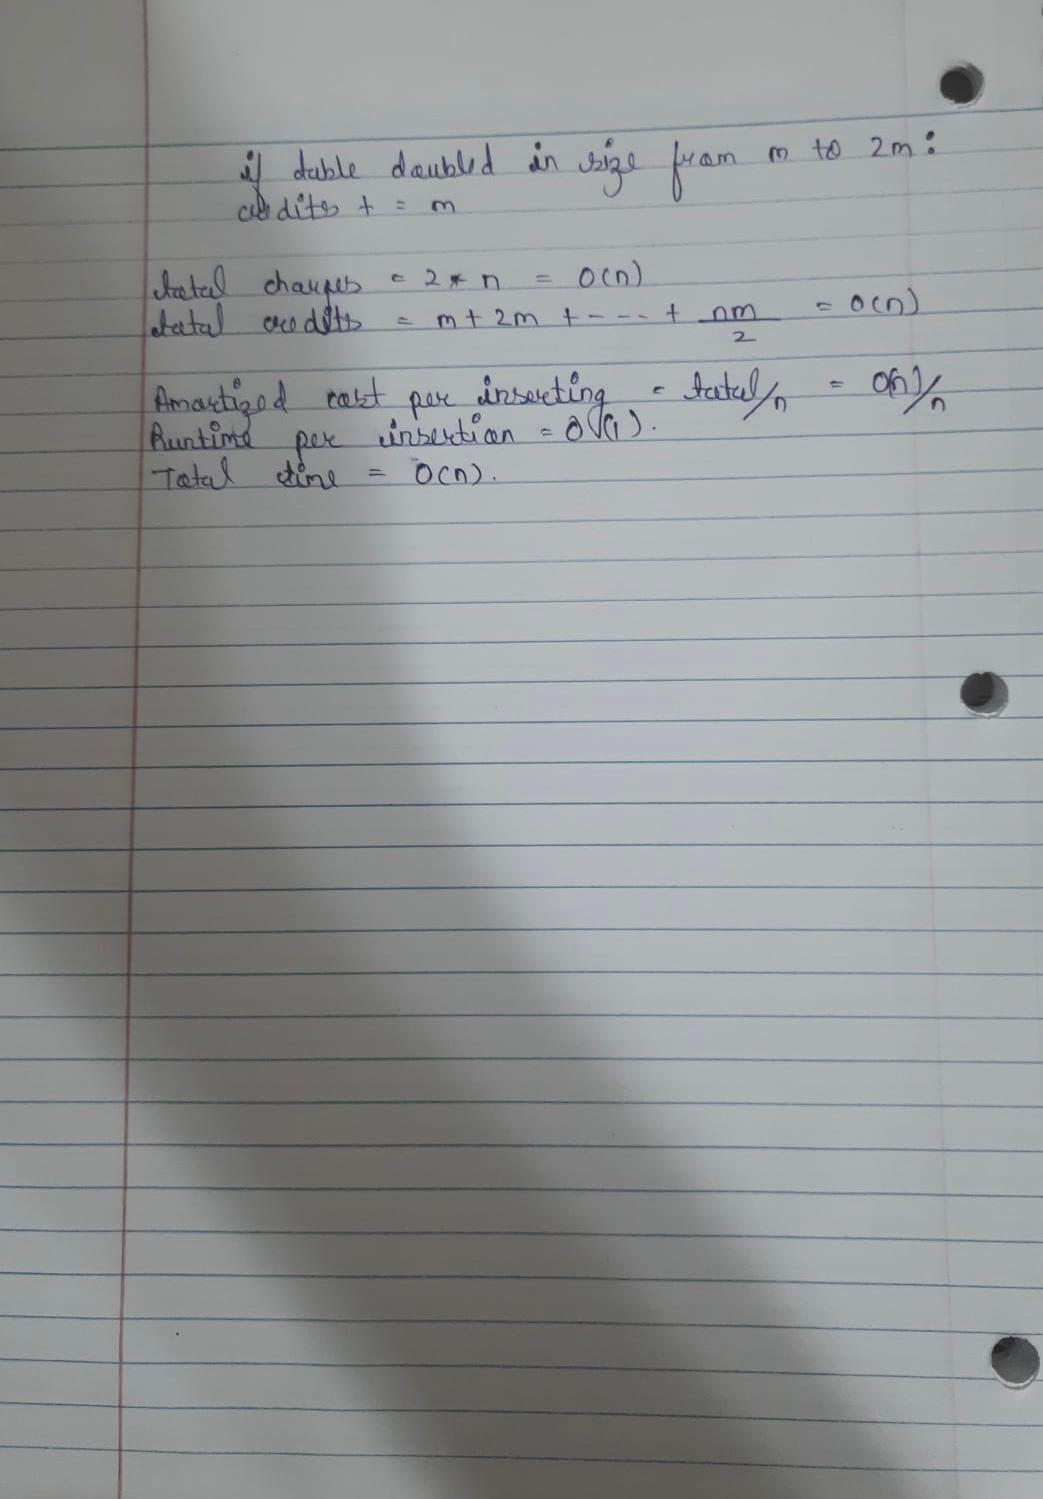 if table doubled in size from m to 2m:
credits + = m
total charges = 2 * n = O(n)
total credits = m + 2m + - - - + nm/2 = O(n)
Amortized cost per inserting = total/n = O(n)/n
Runtime per insertion = O(1).
Total time = O(n).